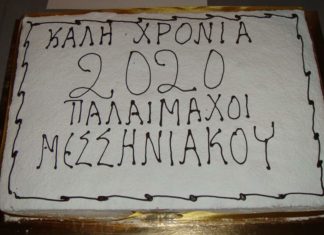 ΚΑΛΗ ΧΡΟΝΙΑ
2020
ΠΑΛΑΙΜΑΧΟΙ
ΜΕΣΣΗΝΙΑΚΟΥ